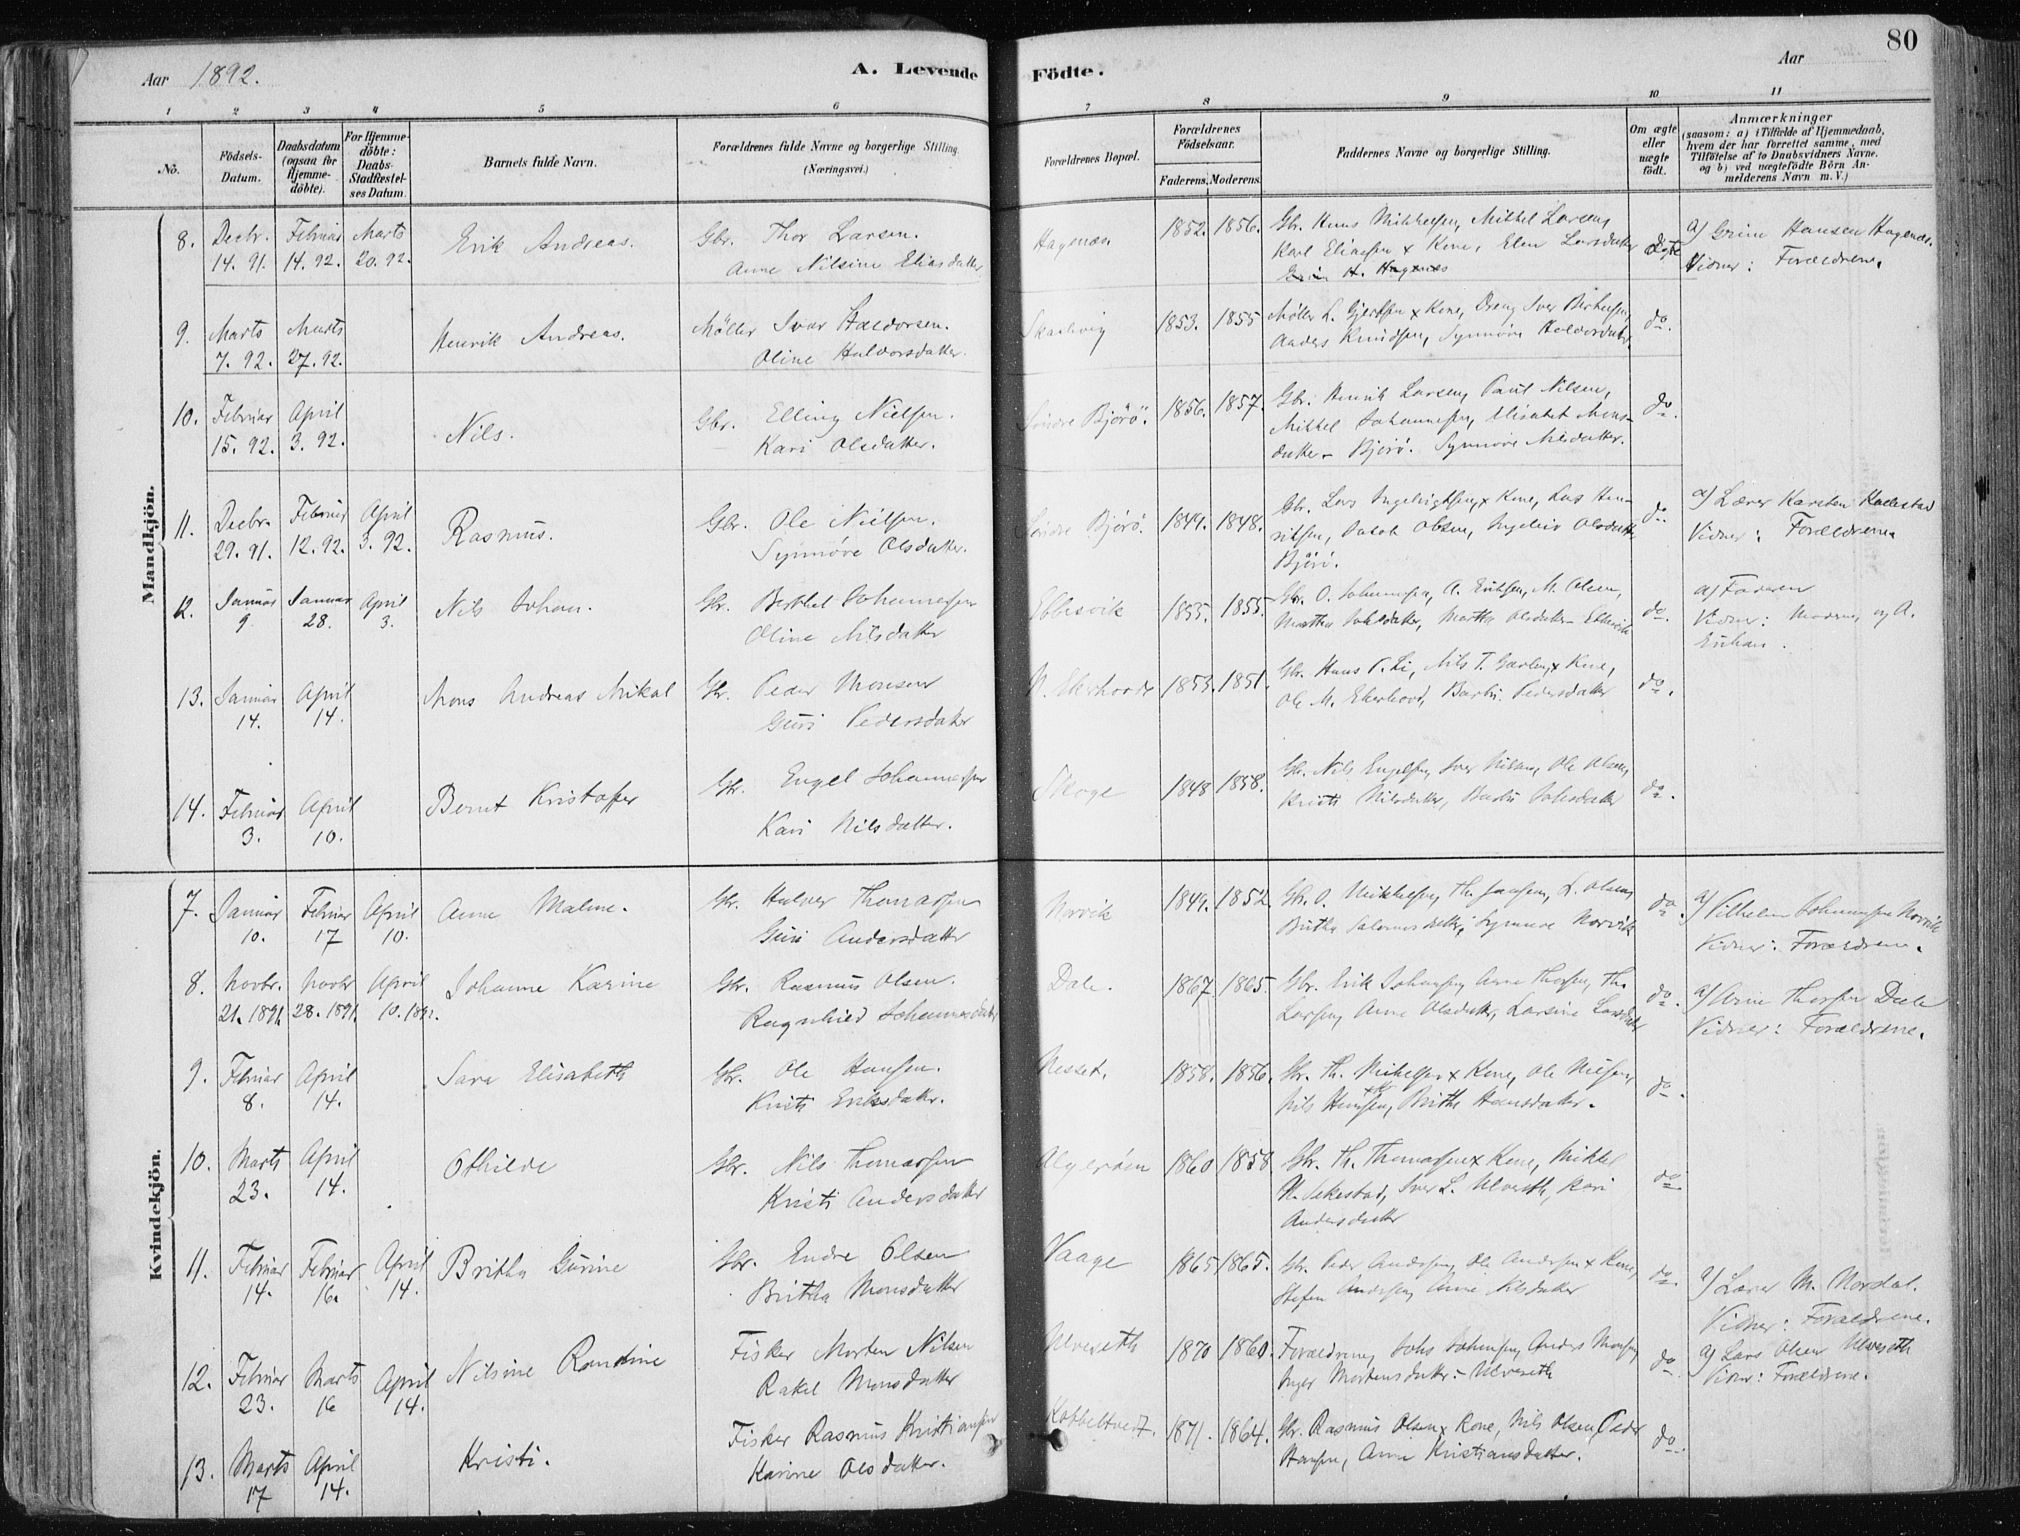 80
Aar 1892.
A. Levende Födte.
Aar
1 2 3 4 5 6 7 8 9 10 11
No.
Födsels-Datum.
Daabsdatum (ogsaa for hjemme-döbte).
For Hjemme-döbte: Daabs-Stadfæstel-ses Datum.
Barnets fulde Navn.
Forældrenes fulde Navne og borgerlige Stilling. (Næringsvei.)
Forældrenes Bopæl.
Forældrenes Födselsaar.
Faderens. Moderens.
Faddernes Navne og borgerlige Stilling.
Om ægte eller uægte födt.
Anmærkninger
(saasom: a) i Tilfælde af Hjemmedaab, hvem der har forrettet samme, med Tilföielse af to Daabsvidners Navne, og b) ved uægtefödte Börn Anmelderens Navn m. V.)
Mandkjön.
8. Decbr. 14. 91. Februar 14. 92. Marts 20. 92. Erik Andreas. Gbr. Thor Larsen.
Anne Nilsine Eliasdatter
Hagenæs 1852. 1856. Gbr. Hans Mikkelsen, Mikkel Larsen,
Karl Eliassen x Kone, Elen Larsdatter
H. Hagenæs
Ægte
a) Grim Hansen Hagenæs.
Vidner: Forældrene.
9. Marts 7. 92. Marts 27. 92. Henrik Andreas. Möller Ivar Haldorsen.
Oline Haldorsdatter.
Skarhvig 1853. 1855 Møller L. Gjertsen x Kone, Dreng Iver
Anders Knudsen, Synnøve Halvorsdatter.
do.
10. Februar 15. 92. April 3. 92. Nils. Gbr. Elling Nielsen.
Kari Olsdatter.
Söndre Bjørö. 1856. 1857. Gbr. Henrik Larsen, Paul Nilsen,
Mikkel Johannesen, Elisabet Mons-
datter - Bjørö. Synnøve Nilsdatter.
do.
11. Decbr. 29. 91. Februar 12. 92. April 3. 92. Rasmus. Gbr. Ole Nielsen.
Synnøve Olsdatter.
Söndre Bjørö. 1849. 1848. Gbr. Lars Ingebrigtsen x Kone, Lars Hen-
riksen, Jakob Olsen, Olsdatter
Bjørö.
do
a) Lærer Karsten
Vidner: Forældrene.
12. Januar 9. Januar 28. April 3. Nils Johan. Gbr. Berthel Johannessen
Oline Nilsdatter
Ebbesvik 1855. Gbr. O. Johannesen, A. Eriksen, M. Olsen,
Martha Martha Olsdatter - Ebbesvik
do.
a) Faderen
Vidner: Moderen og A.
Eriksen.
13. Januar 14. April 14. Mons Andreas Mikal Gbr. Peder Monsen
Guri Pedersdatter
N. Ekerhovd 1853. 1851. Gbr. Hans P. Li, Nils T. x Kone,
Ole M. Ekerhovd, Barbr. Pedersdatter
do.
14. Februar 3. April 10. Bernt Kristoffer Gbr. Engel Johannessen
Kari Nilsdatter.
Skoge 1848 1858. Gbr. Nils Engelsen, Iver Nilsen, Ole Olsen,
Kristi Nilsdatter,
do.
Kvindekjön.
7. Januar 10. Februar 17 April 10. Anne Malene. Gbr. Halvor Thomassen
Guri Andersdatter
Norvik 1849. 1852 Gbr. O. Mikkelsen, L. Olsen,
Britha Salomonsdatter, Synnøve Norvik
do.
a) Vilhelm Johannessen Norvik
Vidner: Forældrene.
8. Novbr. 21. 1891. Novbr 28. 1891. April 10. 1892. Johanne Karine Gbr. Rasmus Olsen.
Ragnhild Johannesdatter
Dale. 1867. 1865. Gbr. Erik Johannsen, Arne Thorsen, Th.
Larsen, Anne Olsdatter, Larsine Larsdatter
do.
a) Arne Thorsen Dale
Vidner: Forældrene.
9. Februar 8. April 14. Sara Elisabeth Gbr. Ole Hansen.
Kristi Eriksdatter.
Nesset. 1858. 1856. Gbr. Th. Mikelsen x Kone, Ole Nilsen,
Nils Hansen, Brithe Hansdatter.
do.
10. Marts 23. April 14. Othilde Gbr. Nils Thomassen
Kristi Andersdatter
Algerøen 1860 1858 Gbr. Th. Thomassen x Kone, Mikkel
N. Sekestad, Iver L. Ulveseth, Kari
Andersdatter
do.
11. Februar 14. Februar 16. April 14. Britha Gurine Gbr. Endre Olsen
Britha Monsdatter
Vaage 1865 1865. Gbr. Peder Andersen, Ole Andersen x Kone,
Stefen Andersen, Anne Nilsdatter
do.
a) Lærer M. Nordal.
Vidner: Forældrene.
12. Februar 23. Marts 16 April 14. Nilsine Randine Fisker Morten Nilsen
Rakel Monsdatter
Ulveseth 1870 1860. Forældrene, Johs Johansen, Anders Monsen,
Inger Mortensdatter - Ulveseth
do.
a) Lars Olsen Ulveseth
Vidner: Forældrene.
13. Marts 17 April 14. Kristi. Fisker Rasmus Kristiansen
Karine Olsdatter.
Kobbeltvedt. 1871. 1864. Gbr. Rasmus Olsen x Kone, Nils Olsen, Peder
Hansen, Anne Kristiansdatter.
do.